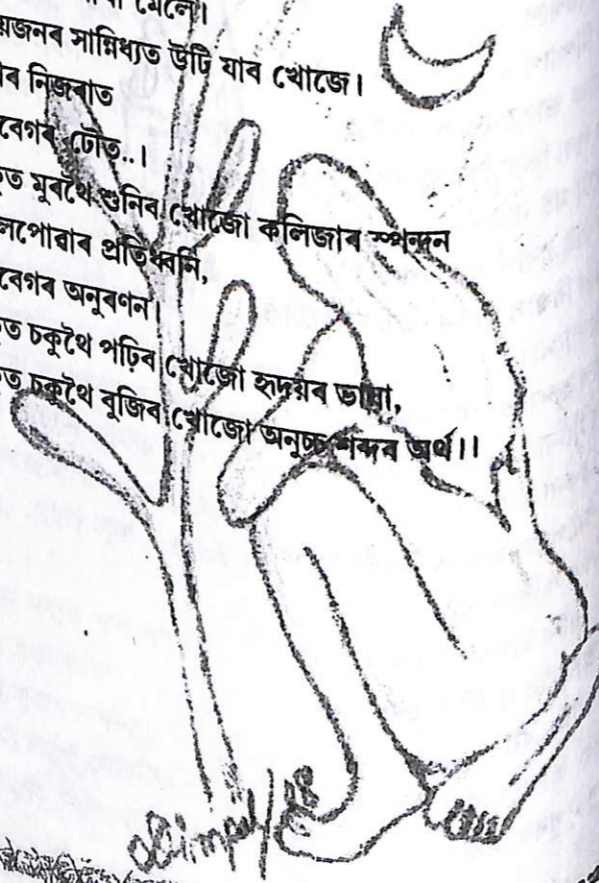 মেলে।
য়জনৰ সান্নিধ্যত উটি যাব খোজে।
ৰ নিজৰাত
বেগৰ ঢৌত..।
ত মুৰথৈ শুনিব খোজো কলিজাৰ স্পন্দন
লপোৱাৰ প্ৰতিধ্বনি,
বেগৰ অনুৰণন।
ত চকুথৈ পঢ়িব খোজো হৃদয়ৰ ভাষা,
ত চকুথৈ বুজিব খোজো অনুচ্চ শব্দৰ অৰ্থ।।